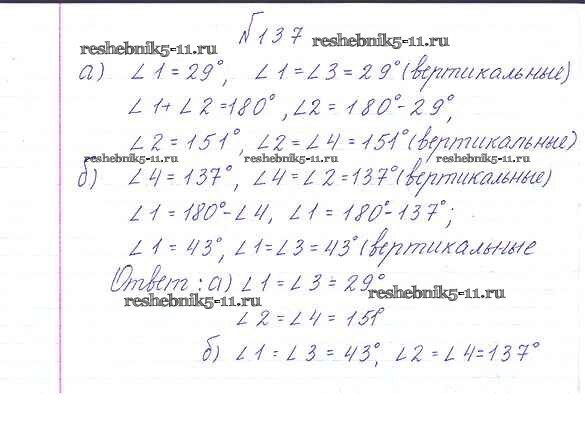 №137
reshebnik5-11.ru reshebnik5-11.ru
а) ∠1 = 29°, ∠1 = ∠3 = 29° (вертикальные)
∠1 + ∠2 = 180°, ∠2 = 180° - 29°,
∠2 = 151°, ∠2 = ∠4 = 151° (вертикальные)
reshebnik5-11.ru reshebnik5-11.ru reshebnik5-11.ru
б) ∠4 = 137°, ∠4 = ∠2 = 137° (вертикальные)
∠1 = 180° - ∠4, ∠1 = 180° - 137°;
∠1 = 43°, ∠1 = ∠3 = 43° (вертикальные
Ответ: а) ∠1 = ∠3 = 29°
reshebnik5-11.ru reshebnik5-11.ru
∠2 = ∠4 = 151°
б) ∠1 = ∠3 = 43°, ∠2 = ∠4 = 137°